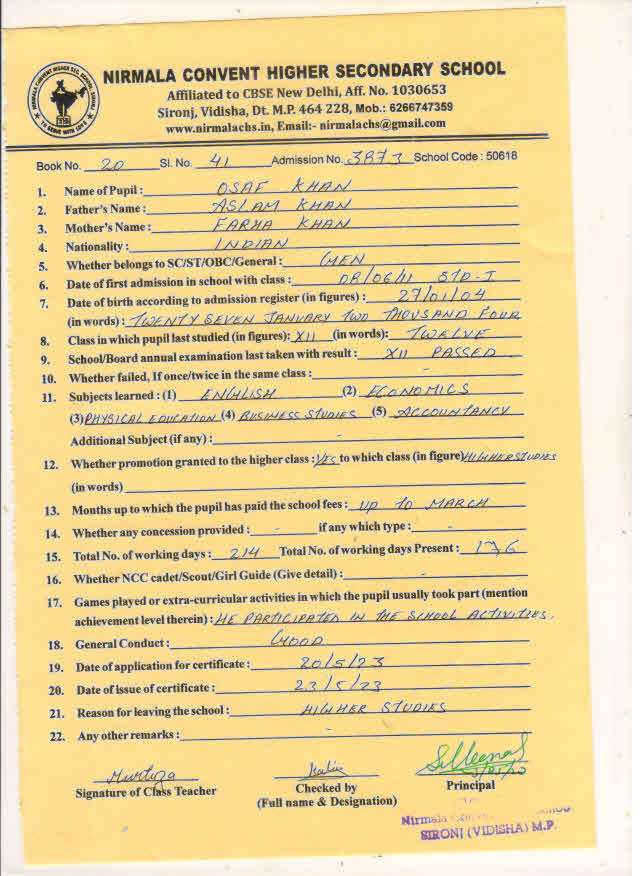 NIRMALA CONVENT HIGHER SECONDARY SCHOOL
Affiliated to CBSE New Delhi, Aff. No. 1030653
Sironj, Vidisha, Dt. M.P. 464 228, Mob.: 6266747359
www.nirmalachs.in, Email:- nirmalachs@gmail.com
NIRMALA CONVENT HIGHER SEC. SCHOOL, SIRONJ
TO SERVE WITH LOVE
Book No. 20 Sl. No. 41 Admission No. 3873 School Code : 50618
1. Name of Pupil : OSAF KHAN
2. Father's Name : ASLAM KHAN
3. Mother's Name : FARHA KHAN
4. Nationality : INDIAN
5. Whether belongs to SC/ST/OBC/General : GEN
6. Date of first admission in school with class : 08/06/11 STD-I
7. Date of birth according to admission register (in figures) : 27/01/04
(in words) : TWENTY SEVEN JANUARY TWO THOUSAND FOUR
8. Class in which pupil last studied (in figures): XII (in words): TWELVE
9. School/Board annual examination last taken with result : XII PASSED
10. Whether failed, If once/twice in the same class : -
11. Subjects learned : (1) ENGLISH (2) ECONOMICS
(3) PHYSICAL EDUCATION (4) BUSINESS STUDIES (5) ACCOUNTANCY
Additional Subject (if any) : -
12. Whether promotion granted to the higher class : YES to which class (in figure) HIGHER STUDIES
(in words)
13. Months up to which the pupil has paid the school fees : UP TO MARCH
14. Whether any concession provided : - if any which type : -
15. Total No. of working days : 214 Total No. of working days Present : 176
16. Whether NCC cadet/Scout/Girl Guide (Give detail) : -
17. Games played or extra-curricular activities in which the pupil usually took part (mention
achievement level therein) : HE PARTICIPATED IN THE SCHOOL ACTIVITIES.
18. General Conduct : GOOD
19. Date of application for certificate : 20/5/23
20. Date of issue of certificate : 23/5/23
21. Reason for leaving the school : HIGHER STUDIES
22. Any other remarks : -
Murtuza
Signature of Class Teacher
Checked by
(Full name & Designation)
Principal
Nirmala
SIRONJ (VIDISHA) M.P.